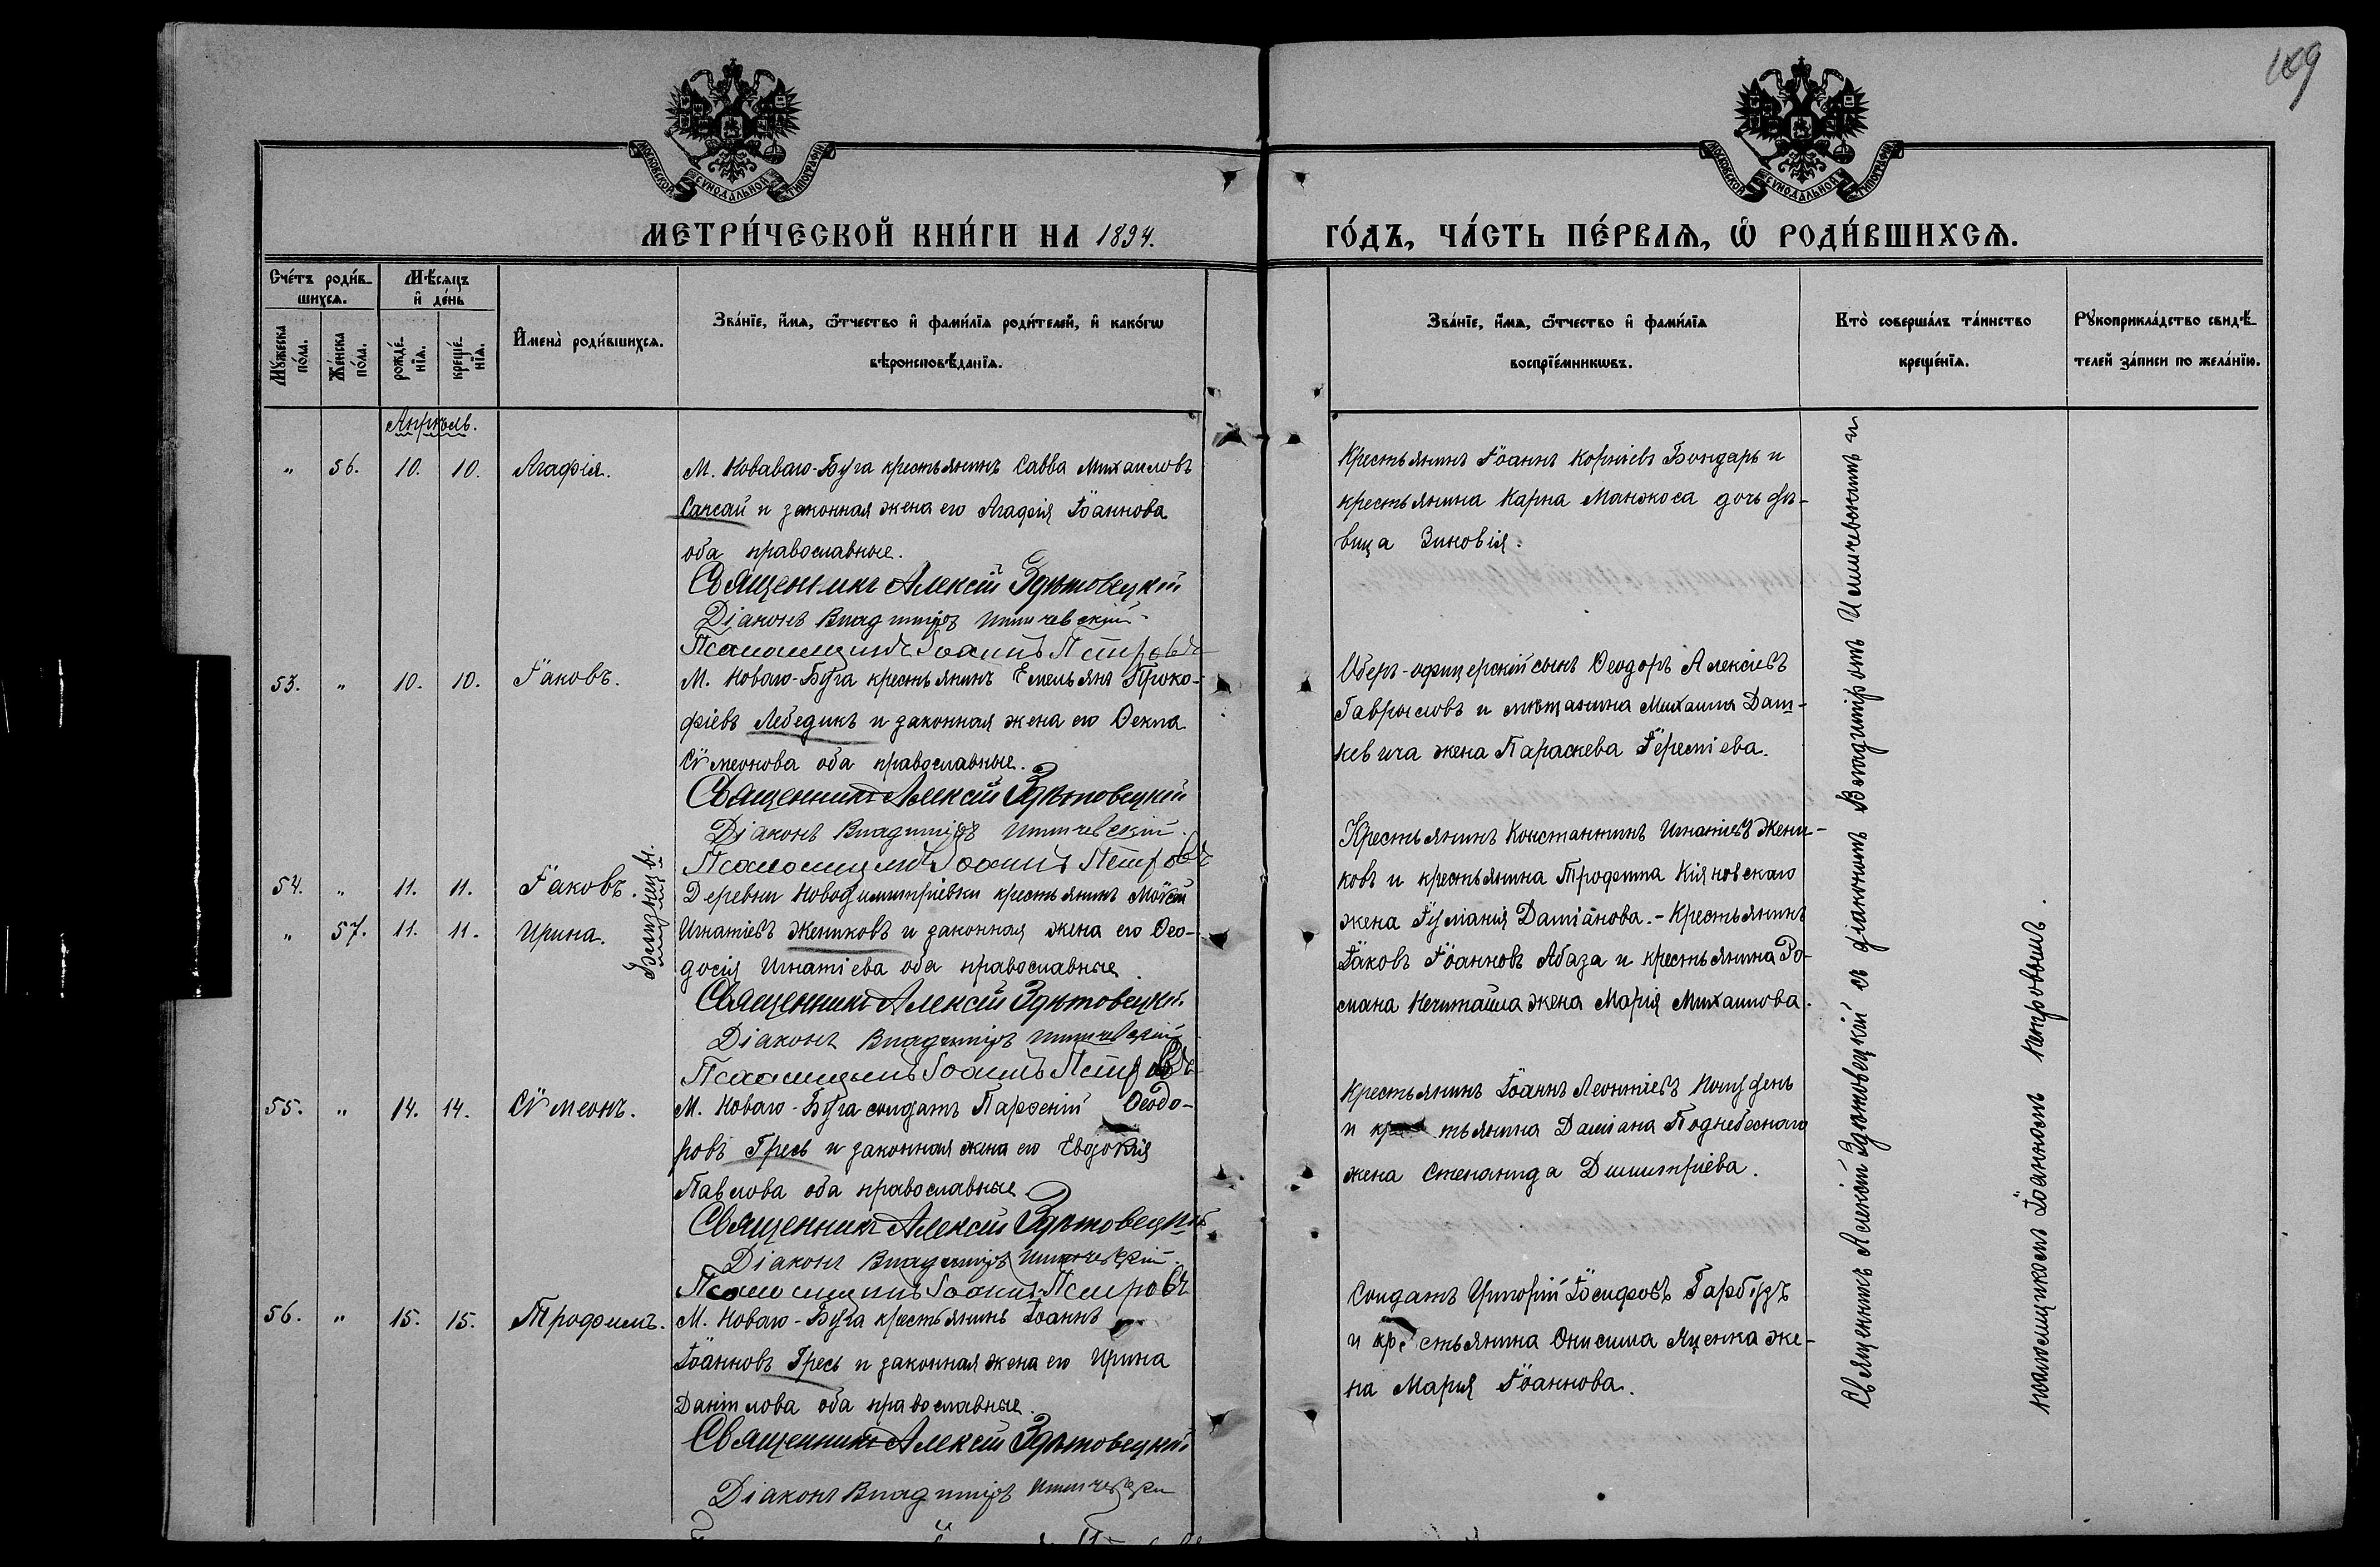 109
МОСКОВСКОЙ СѴНОДАЛЬНОЙ ТИПОГРАФІИ
МОСКОВСКОЙ СѴНОДАЛЬНОЙ ТИПОГРАФІИ
МЕТРИ́ЧЕСКОЙ КНИ́ГИ НА 1894.
ГО́ДЪ, ЧА́СТЬ ПЕ́РВАѦ, Ѡ҆ РОДИ́ВШИХСѦ.
Сче́тъ роди́в-
шихсѧ.
Мꙋ́жеска по́ла.
Же́нска по́ла.
Мѣ́сѧцъ
и҆ де́нь
рожде́-
нїѧ.
креще́-
нїѧ.
И҆мена̀ роди́вшихсѧ.
Зва́нїе, и҆́мѧ, ѻ҆́тчество и҆ фами́лїѧ роди́телей, и҆ како́гѡ
вѣроисповѣ́данїѧ.
Зва́нїе, и҆́мѧ, ѻ҆́тчество и҆ фами́лїѧ
воспрїе́мникѡвъ.
Кто̀ соверша́лъ та́инство
креще́нїѧ.
Рꙋкоприкла́дство свидѣ́-
телей за́писи по жела́нїю.
Апрѣль.
" 56. 10. 10. Агафія.
М. Коваваго-Буга крестьянинъ Савва Михаиловъ
Сансай и законная жена его Агафія Іоаннова
оба православные.
Священникъ Алексій Здѣтовецкій
Діаконъ Владиміръ Илличевскій
Псаломщикъ Іоаннъ Петровъ
Крестьянинъ Іоаннъ Корніевъ Бондарь и
крестьянина Карпа Манжоса дочь дѣ-
вица Зиновія.
53. " 10. 10. Іаковъ.
М. Новаго-Буга крестьянинъ Емельянъ Проко-
фіевъ Лебедикъ и законная жена его Ѳекла
Сѵмеонова оба православные.
Священникъ Алексій Здѣтовецкій
Діаконъ Владиміръ Илличевскій
Псаломщикъ Іоаннъ Петровъ
Оберъ-офицерскій сынъ Ѳеодоръ Алексіевъ
Гавриловъ и мѣщанина Михаила Даш-
кевича жена Параскева Іереміева.
54. " 11. 11. Іаковъ.
" 57. 11. 11. Ирина.
Близнецы.
Деревни Новодимитріевки крестьянинъ Моѵсей
Игнатіевъ Жениковъ и законная жена его Ѳео-
досія Игнатіева оба православные.
Священникъ Алексій Здѣтовецкій
Діаконъ Владиміръ Илличевскій
Псаломщикъ Іоаннъ Петровъ
Крестьянинъ Константинъ Игнатіевъ Жени-
ковъ и крестьянина Трофима Кіяновскаго
жена Іуліанія Даміанова. - Крестьянинъ
Іаковъ Іоанновъ Абаза и крестьянина Ро-
мана Нечитайла жена Марія Михаилова.
55. " 14. 14. Сѵмеонъ.
М. Новаго-Буга солдатъ Парфеній Ѳеодо-
ровъ Гресь и законная жена его Евдокія
Павлова оба православные
Священникъ Алексій Здѣтовецкій
Діаконъ Владиміръ Илличевскій
Псаломщикъ Іоаннъ Петровъ
Крестьянинъ Іоаннъ Леонтіевъ
и крестьянина Даміана Поднебеснаго
жена Степанида Димитріева.
56. " 15. 15. Трофимъ.
М. Новаго-Буга крестьянинъ Іоаннъ
Іоанновъ Гресь и законная жена его Ирина
Даніилова оба православные.
Священникъ Алексій Здѣтовецкій
Діаконъ Владиміръ Илличевскій
Солдатъ Григорій Іосифовъ Гарбузъ
и крестьянина Онисима Яценка же-
на Марія Іоаннова.
Священникъ Алексій Здѣтовецкій съ діакономъ Владиміромъ Илличевскимъ и
псаломщикомъ Іоанномъ Петровымъ.